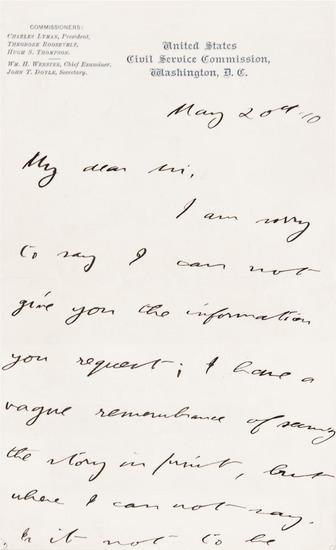 COMMISSIONERS:
CHARLES LYMAN, President,
THEODORE ROOSEVELT,
HUGH S. THOMPSON.
WM. H. WEBSTER, Chief Examiner.
JOHN T. DOYLE, Secretary.
United States
Civil Service Commission,
Washington, D. C.
May 20th 90
My dear Sir,
I am sorry
to say I can not
give you the information
you request; I have a
vague remembrance of seeing
the story in print, but
where I can not say.
Is it not to be